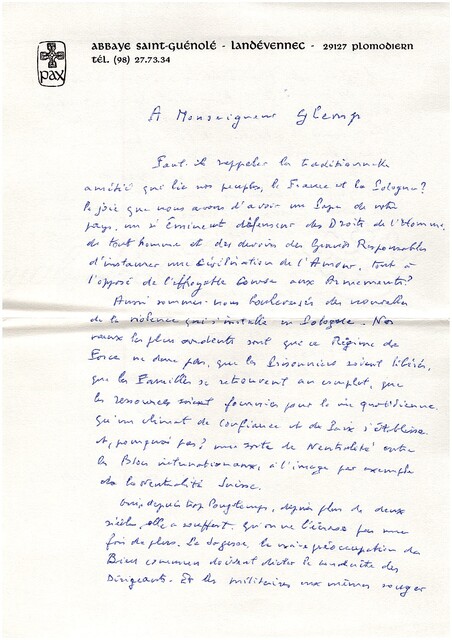 PAX
ABBAYE SAINT-GUÉNOLÉ - LANDÉVENNEC - 29127 PLOMODIERN
TÉL. (98) 27.73.34
A Monseigneur Glemp
Faut-il rappeler la traditionnelle
amitié qui lie nos peuples, la France et la Pologne ?
la joie que nous avons d'avoir un Pape de votre
pays, un si Éminent défenseur des Droits de l'Homme,
de tout homme et des devoirs des Grands Responsables
d'instaurer une Civilisation de l'Amour, tout à
l'opposé de l'effroyable Course aux Armements ?
Aussi sommes-nous bouleversés des nouvelles
de la violence qui s'installe en Pologne. Nos
vœux les plus ardents sont que ce Régime de
Force ne dure pas, que les Prisonniers soient libérés,
que les Familles se retrouvent au complet, que
les ressources soient fournies pour la vie quotidienne
qu'un climat de confiance et de Paix s'établisse
et, pourquoi pas ? une sorte de Neutralité entre
les Blocs internationaux, à l'image par exemple
de la Neutralité Suisse.
Oui, depuis trop longtemps, depuis plus de deux
siècles, elle a souffert. qu'on ne l'écrase pas une
fois de plus. La Sagesse, la vraie préoccupation du
Bien commun doivent dicter la conduite des
Dirigeants. Et les militaires eux mêmes songer